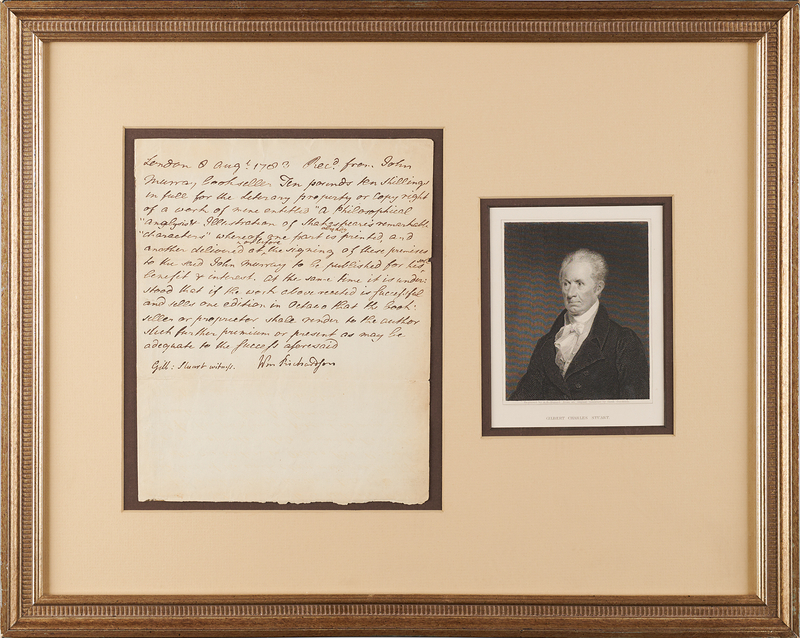 London 8 Augt. 1783 Recd. from John
Murray bookseller Ten pounds ten shillings
in full for the literary property or copy right
of a work of mine entitled "A Philosophical
"analysis & Illustration of Shakespeare's remarkable
"characters" whereof one part is printed, and
another delivered at the signing of these premises
to the said John Murray to be published for his
benefit & interest. At the same time it is under:
stood that if the work above recited is successful
and sells one edition in Octavo that the Book:
seller or proprietor shall render to the author
such further premium or present as may be
adequate to the success aforesaid
Gilb: Stuart witness. Wm Richardson
GILBERT CHARLES STUART